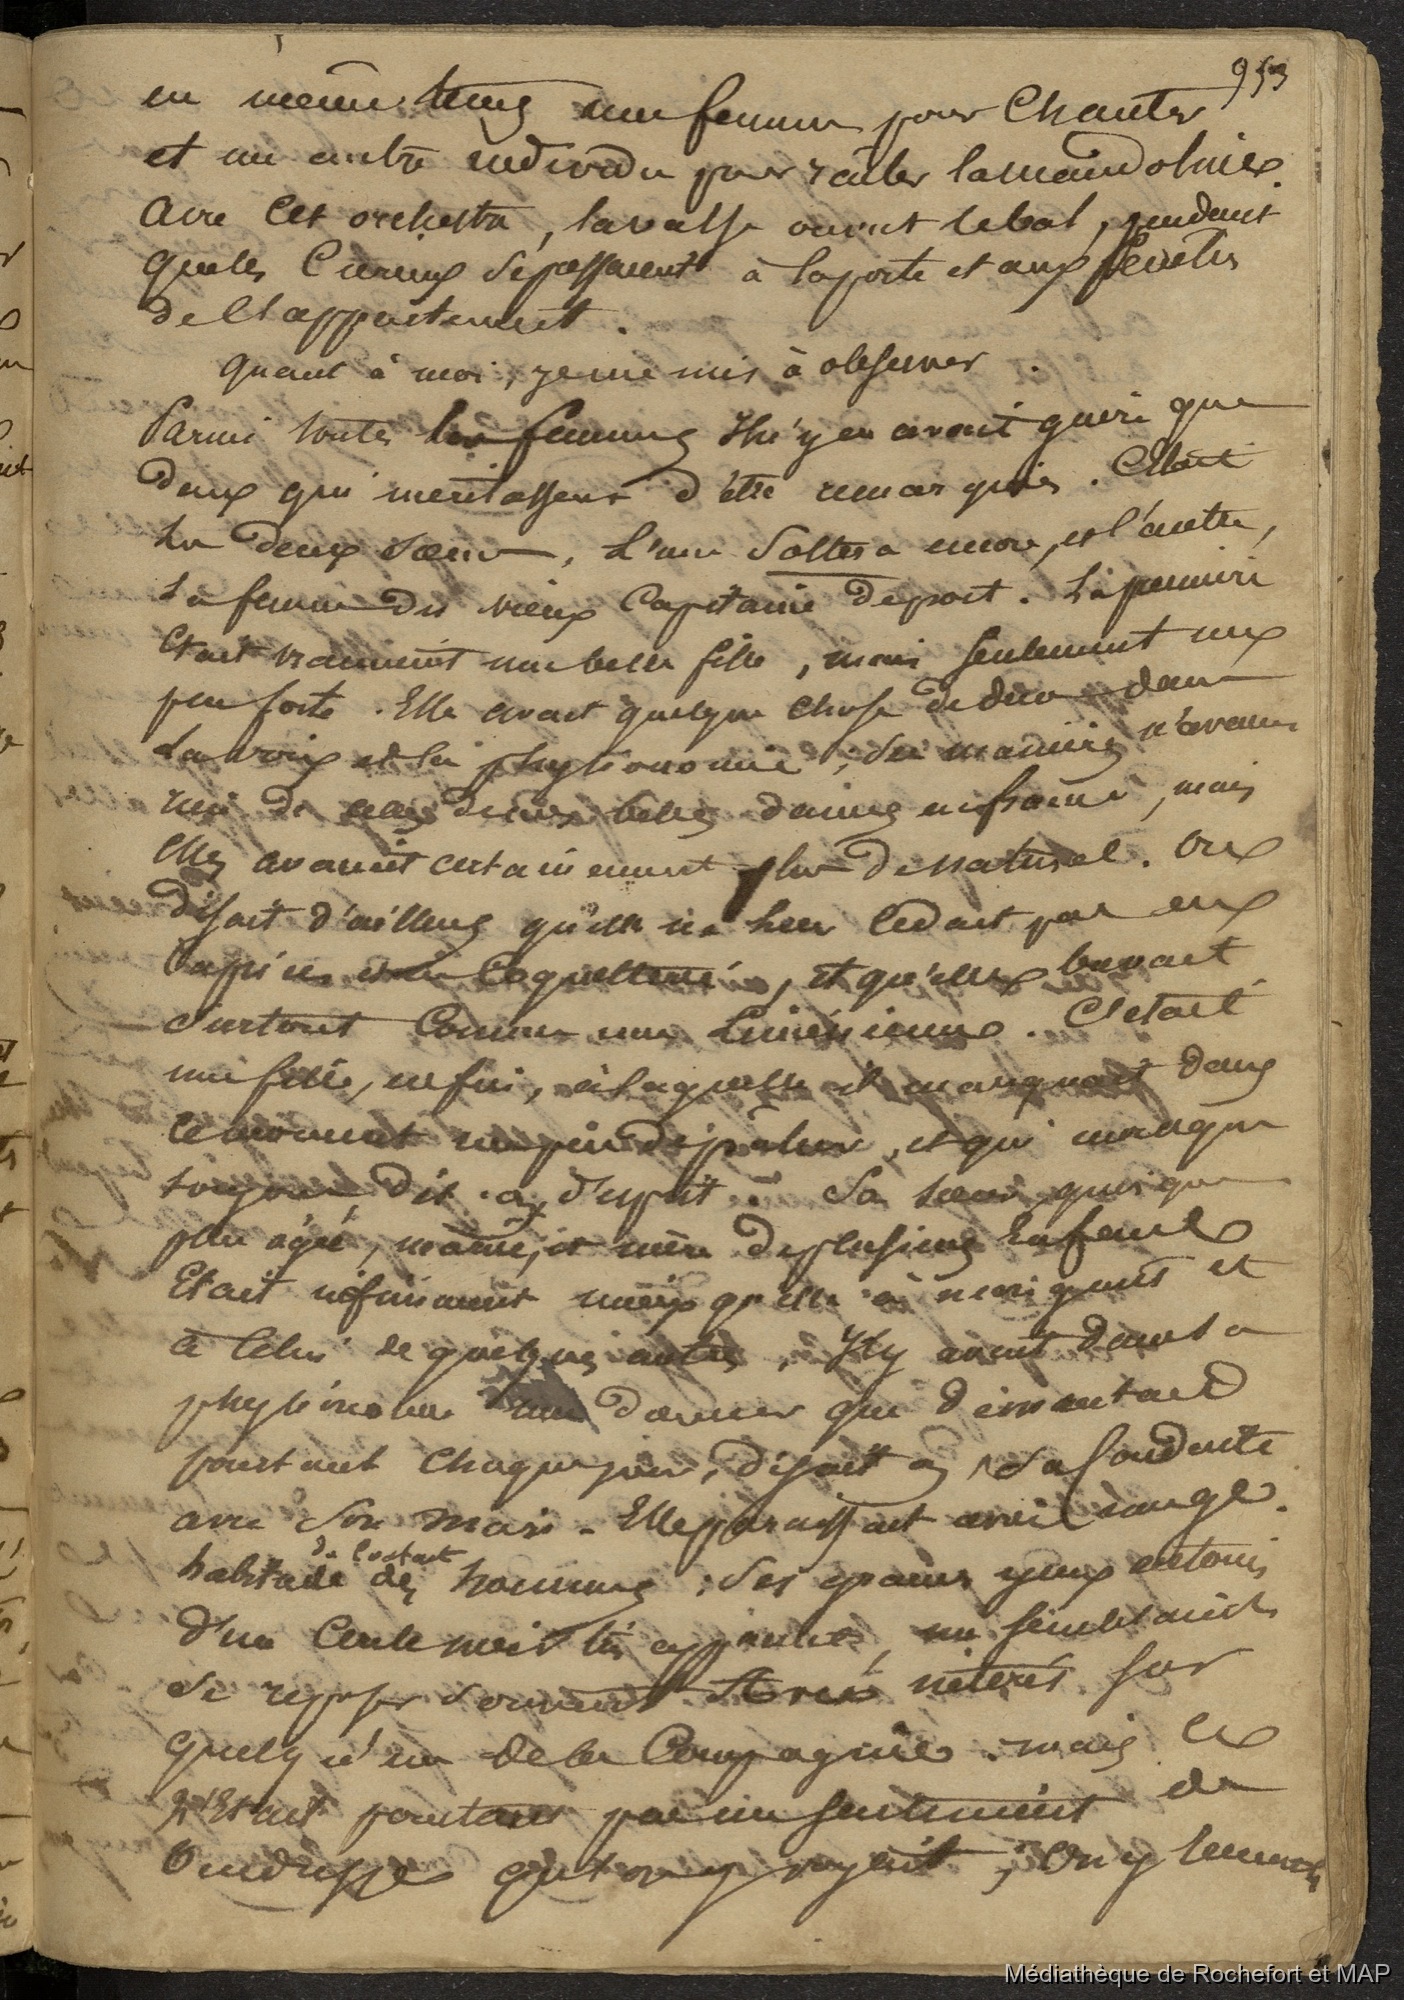 953
en même tems une femme pour Chanter
et un autre individu pour racler la mandoline.
Avec Cet orchestre, la valse ouvrit le bal, pendant
que les Curieux se pressaient à la porte et aux fenêtres
de l'appartement.
Quant à moi, je me mis à observer.
Parmi toutes les femmes Il n'y en avait guère que
deux qui meritassent d'être remarquées. C'était
les deux sœurs, L'une Soltera encore, et l'autre,
La femme du vieux Capitaine de port. La premiere
Etait vraiment une belle fille, mais seulement un
peu forte. Elle avait quelque chose de dur dans
La voix et la physionomie; ses manières n'avaient
rien de celles de nos belles dames en france, mais
Elles avaient certainement plus de naturel. On
disait d'ailleurs qu'elle ne leur cedait pas en
Caprices et en Coquetterie, et qu'elle
surtout Comme une Liménienne. C'etait
une fille, enfin, à laquelle il manquait dans
le moment un peu de pâleur, et qui manqua
toujours, dit-on, d'esprit. Sa sœur, quoique
plus agée, mariée, et mère de plusieurs Enfans
Etait infiniment mieux qu'elle à mon gout et
à Celui de quelques autres. Il y avait dans sa
physionomie une douceur que démentait
pourtant Chaque jour, disait on, sa Conduite
avec son mari. Elle paraissait avoir
habitude du Contact des hommes; Ses grands yeux entourés
d'un Cercle noir très apparent, me semblaient
se reposer souvent avec intérêt sur
quelqu'un de la Compagnie. mais Ce
n'Etait pourtant pas un sentiment de
tendresse qu'on y voyait; On y
Médiathèque de Rochefort et MAP